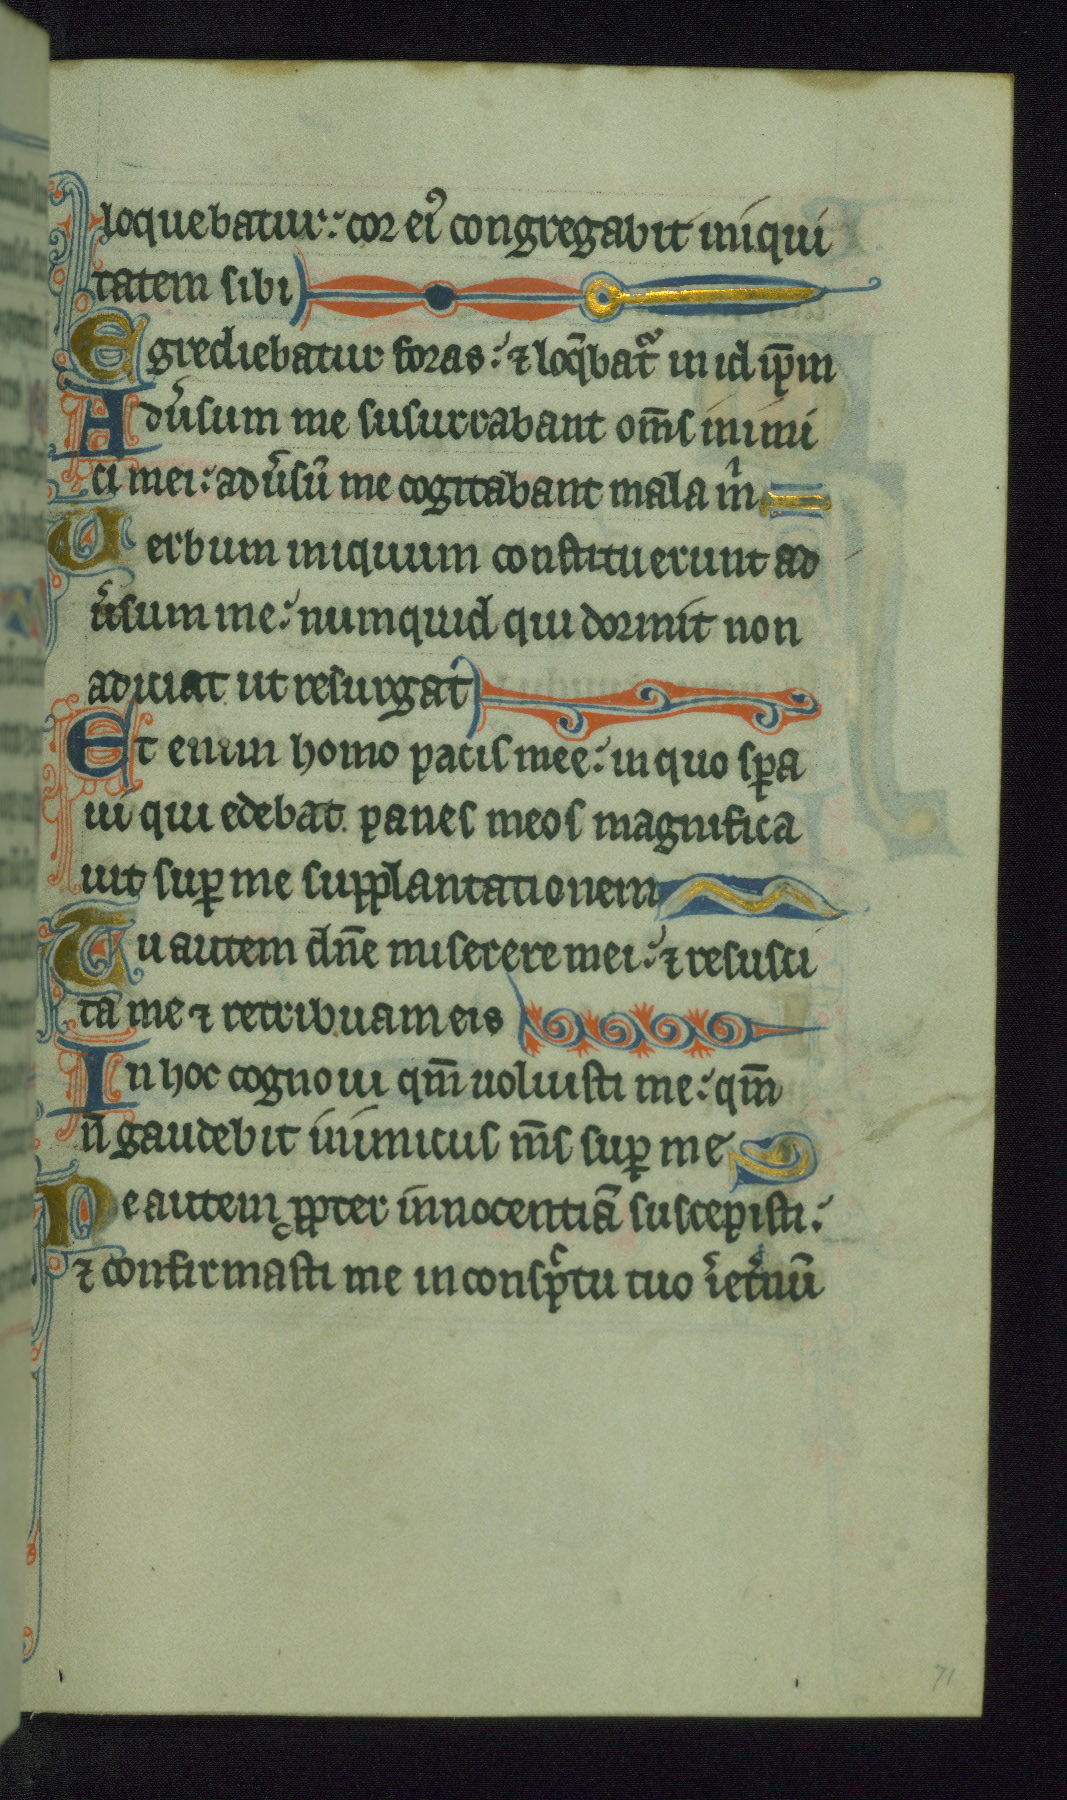 loquebatur: cor eiꝰ congregabit iniqui
tatem sibi
Egrediebatur foras: ⁊ loq̄bat᷑ in id ip̄m
Aduͥsum me susurrabant om̄s inimi
ci mei: aduͥsū me cogitabant mala m̍
Uerbum iniquum constituerunt ad
uͥsum me: numquid qui dormit non
adiciat ut resurgat
Et enim homo pacis mee: in quo sꝑa
ui qui edebat panes meos magnifica
uit suꝑ me supplantationem
Tu autem dn̄e miserere mei: ⁊ resusci
ta me ⁊ retribuam eis
In hoc cognoui qm̄ uoluisti me: qm̄
n̄ gaudebit inimicus m̄s suꝑ me
Me autem ꝓpter innocentiā suscepisti:
⁊ confirmasti me in consp̄ctu tuo ī et̍nū
71